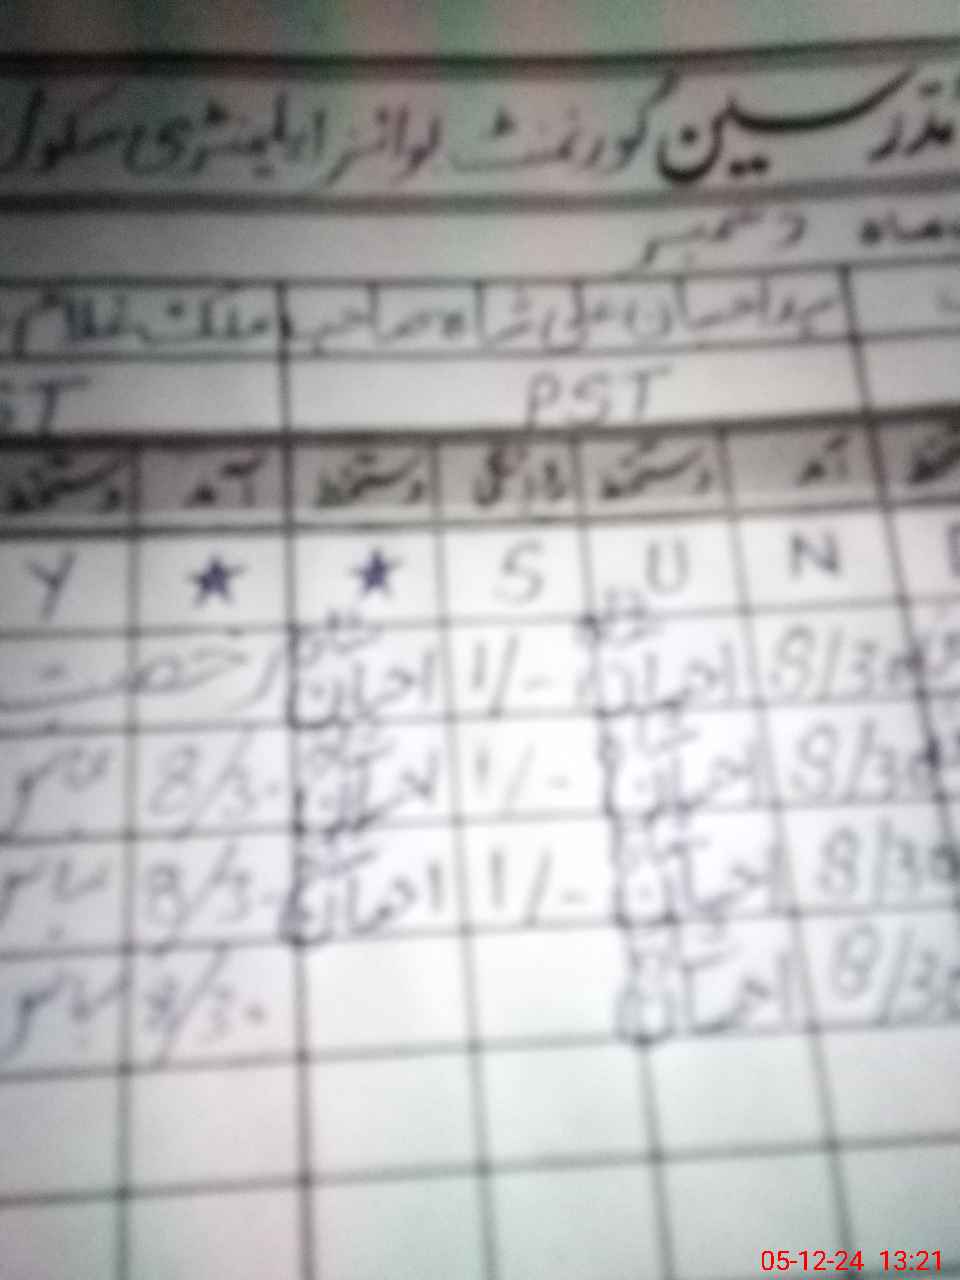 مدرسین گورنمنٹ لوائر ایلیمنٹری سکول
ماہ دسمبر
سید احسان علی شاہ صاحب ملک غلام
PST ST
آمد دستخط روانگی دستخط آمد دستخط
N U S ★ ★ Y
8/30 احسان 1/- احسان رخصت
8/30 احسان 1/- احسان 8/30
8/30 احسان 1/- احسان 8/30
8/30 احسان 8/30
05-12-24 13:21